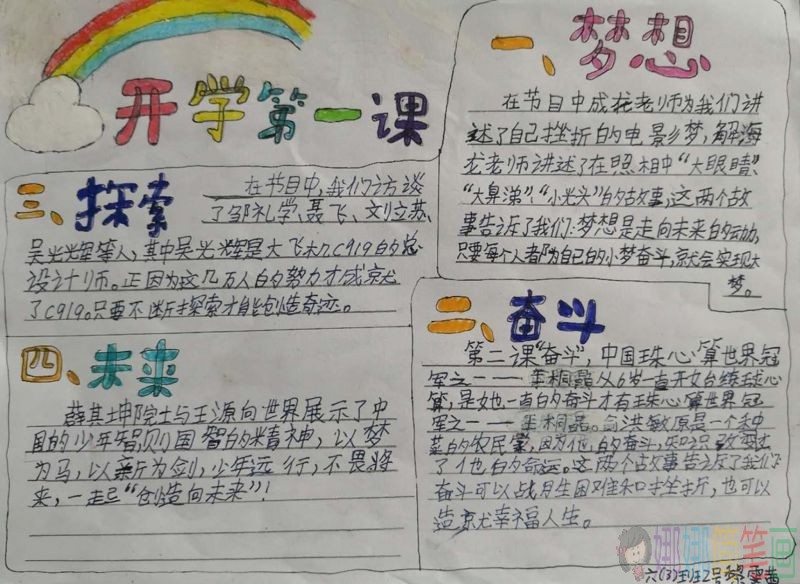 开学第一课
一、梦想
在节目中成龙老师为我们讲
述了自己挫折的电影梦,解海
龙老师讲述了在照相中“大眼睛”、
“大鼻涕”、“小光头”的故事,这两个故
事告诉了我们:梦想是走向未来的动力,
只要每个人都为自己的小梦奋斗,就会实现大
梦。
二、奋斗
第二课“奋斗”,中国珠心算世界冠
军之一——桐晶从6岁一直开始练珠心
算,是她一直的奋斗才有珠心算世界冠
军之一——桐晶。俞洪敏原是一个种
菜的农民家,因为他的奋斗,知识改变
了他的命运。这两个故事告诉了我们:
奋斗可以战胜困难和挫折,也可以
造就幸福人生。
三、探索
在节目中,我们访谈
了邹礼学、聂飞、刘立苏、
吴光辉等人,其中吴光辉是大飞机C919的总
设计师。正因为这几万人的努力才成就
了C919。只要不断探索才能创造奇迹。
四、未来
薛其坤院士与王源向世界展示了中
国的少年智则国智的精神,以梦
为马,以新为剑,少年远行,不畏将
来,一起“创造向未来”!
六(3)班2号雯茜
娜娜画笔画